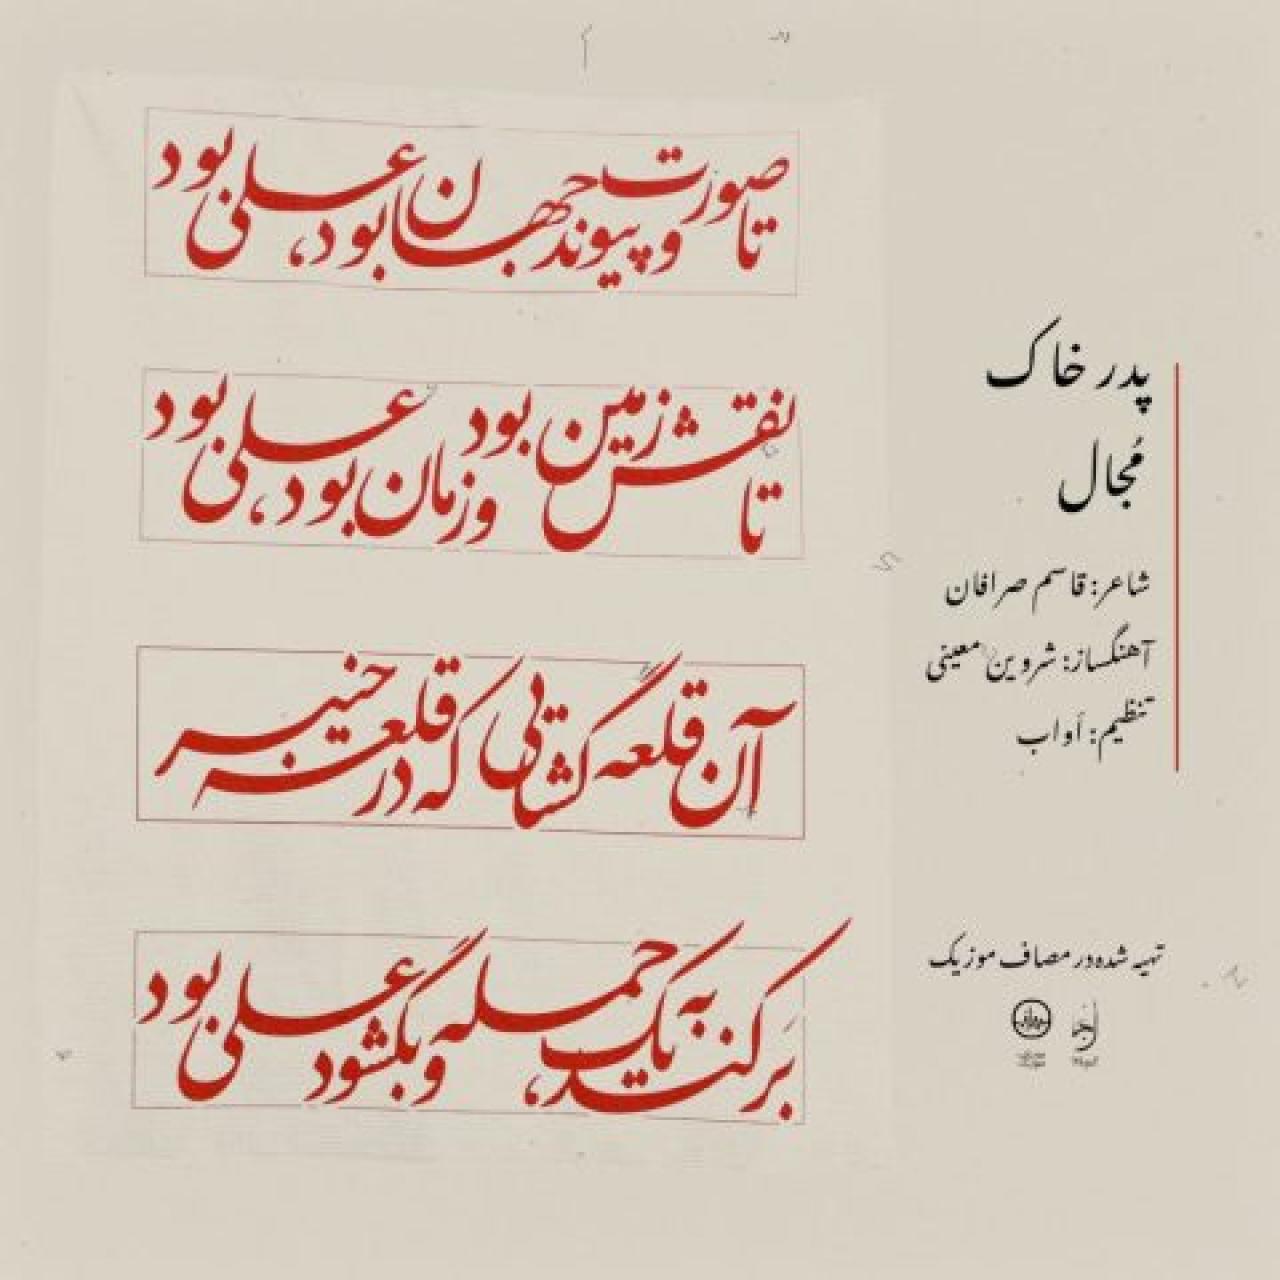 تا صورت و پیوند جهان بود، علی بود
تا نقش زمین بود و زمان بود، علی بود
آن قلعه گشایی که در قلعه خیبر
برکند به یک حمله و بگشود علی بود
پدر خاک
مُجال
شاعر: قاسم صرافان
آهنگساز: شروین معینی
تنظیم: اَواب
تهیه شده در مصاف موزیک